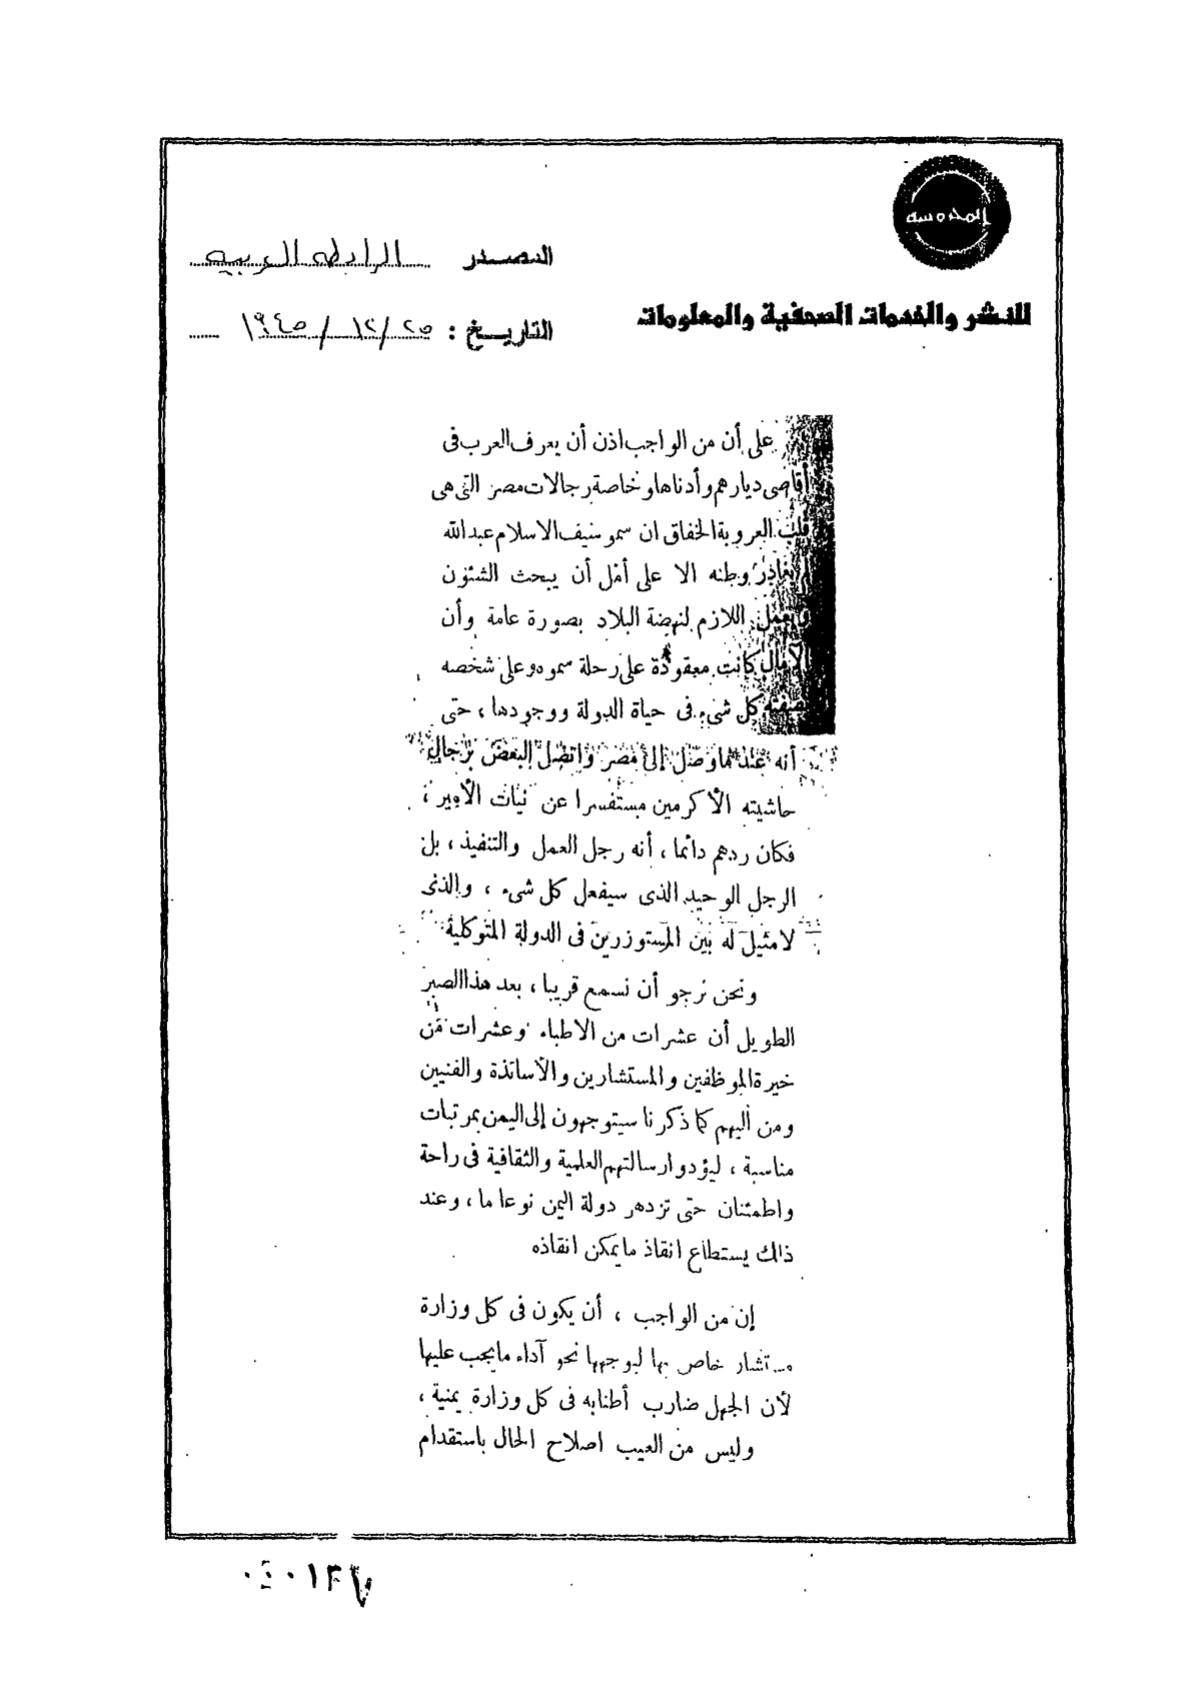 المحروسة
المصدر الرابطه العربيه
للنشر والخدمات الصحفية والمعلومات
التاريخ : ٢٥/١٢/١٩٤٥
على أن من الواجب اذن أن يعرف العرب فى
أقاصى ديارهم وأدناها وخاصة رجالات مصر التى هى
قلب العروبة الخفاق ان سمو سيف الاسلام عبد الله
وطنه الا على أمل أن يبحث الشئون
ويعمل اللازم لنهضة البلاد بصورة عامة وأن
الآمال كانت معقودة على رحلة سموه وعلى شخصه
بصفته كل شىء فى حياة الدولة ووجودها ، حتى
أنه عندما وصل إلى مصر واتصل البعض برجال
حاشيته الأكرمين مستفسرا عن نيات الأمير ،
فكان ردهم دائما ، أنه رجل العمل والتنفيذ ، بل
الرجل الوحيد الذى سيفعل كل شىء ، والذى
لا مثيل له بين المستوزرين فى الدولة المتوكلية
ونحن نرجو أن نسمع قريبا ، بعد هذا الصبر
الطويل أن عشرات من الاطباء وعشرات من
خيرة الموظفين والمستشارين والأساتذة والفنيين
ومن اليهم كما ذكرنا سيتوجهون إلى اليمن بمرتبات
مناسبة ، ليؤدوا رسالتهم العلمية والثقافية فى راحة
واطمئنان حتى تزدهر دولة اليمن نوعا ما ، وعند
ذاك يستطاع انقاذ ما يمكن انقاذه
إن من الواجب ، أن يكون فى كل وزارة
مستشار خاص بها ليوجهها نحو آداء ما يجب عليها
لأن الجهل ضارب أطنابه فى كل وزارة يمنية ،
وليس من العيب اصلاح الحال باستقدام